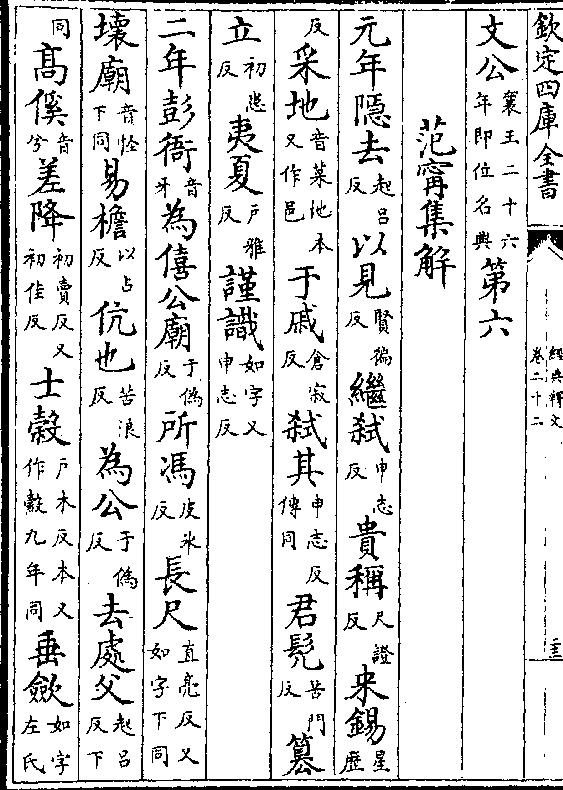 欽定四庫全書
經典釋文
卷二十二
文公襄王二十六年即位名興第六
范甯集解
元年隠去起呂反以見賢徧反繼弑申志反貴稱尺證反来錫星歷
反采地音菜地本又作邑于戚倉寂反弑其申志反傳同君髠苦門反簒
立初患反夷夏戶雅反謹識如字又申志反
二年彭衙音牙為僖公廟于偽反所馮皮氷反長尺直亮反又如字下同
壞廟音怪下同易檐以占反伉也苦浪反為公于偽反去處父起呂反下
同高傒音兮差降初賣反又初佳反士縠戶木反本又作觳九年同垂歛如字左氏